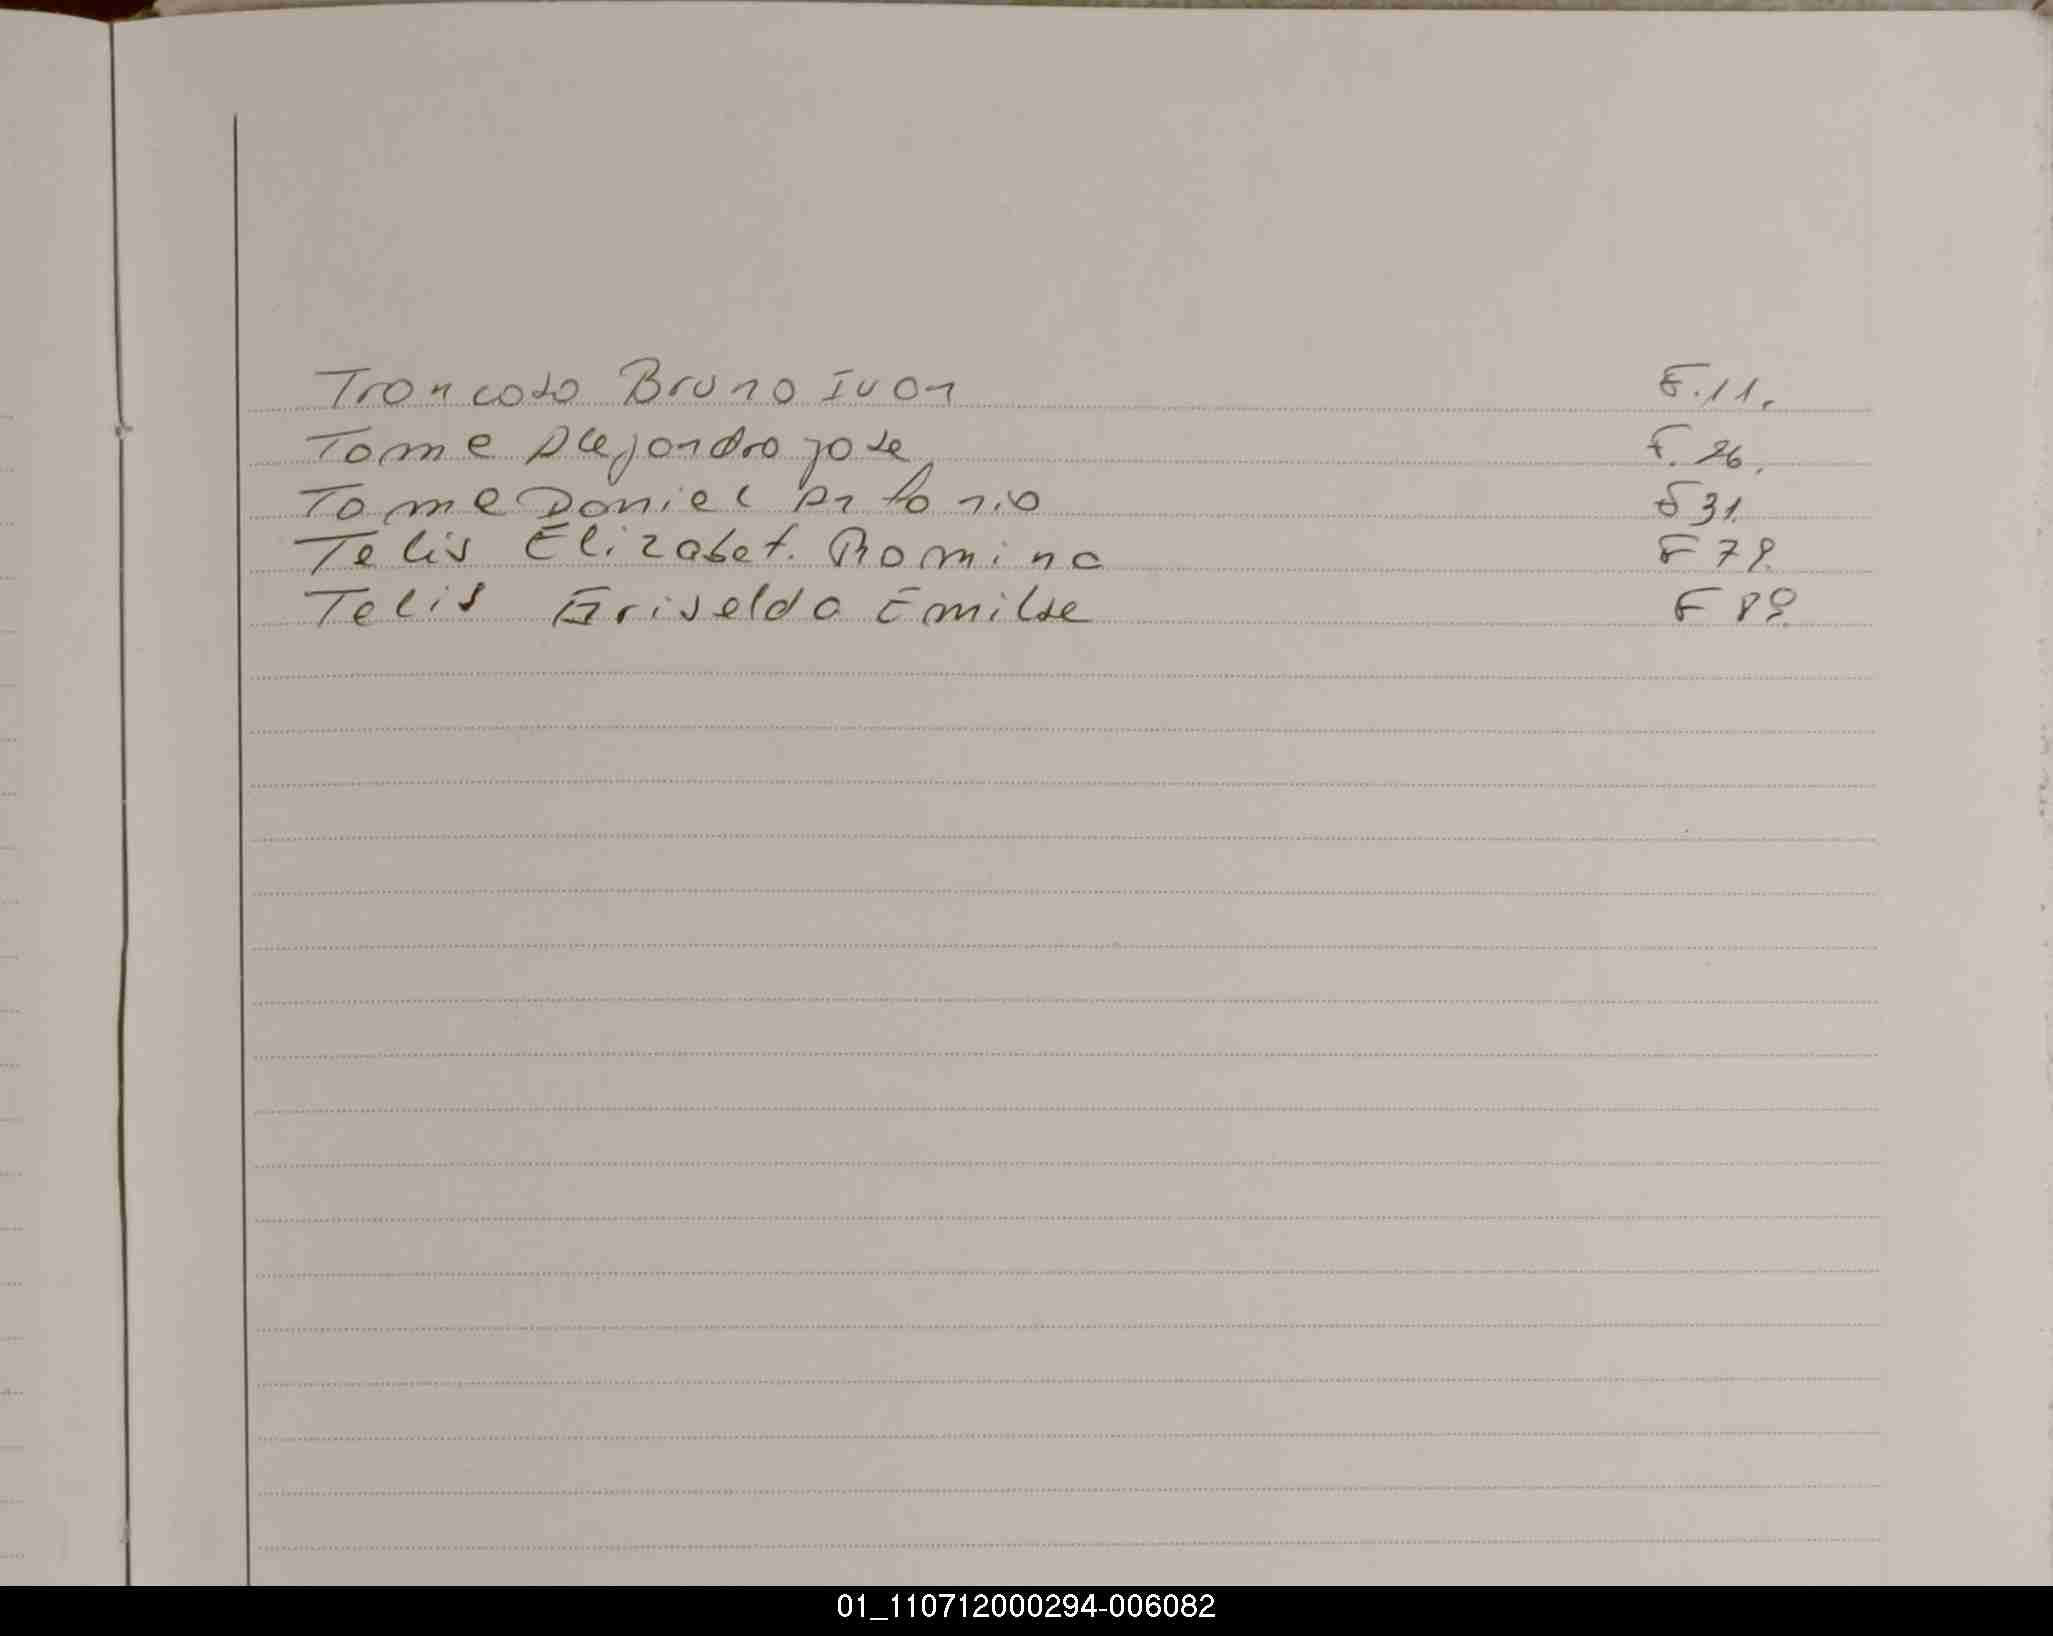 Troncoso Bruno Ivan F.11.
Tome Alejandro jose F. 26.
Tome Daniel Antonio F 31.
Telis Elizabet. Romina F 79.
Telis Griselda Emilse F 89.
01_110712000294-006082